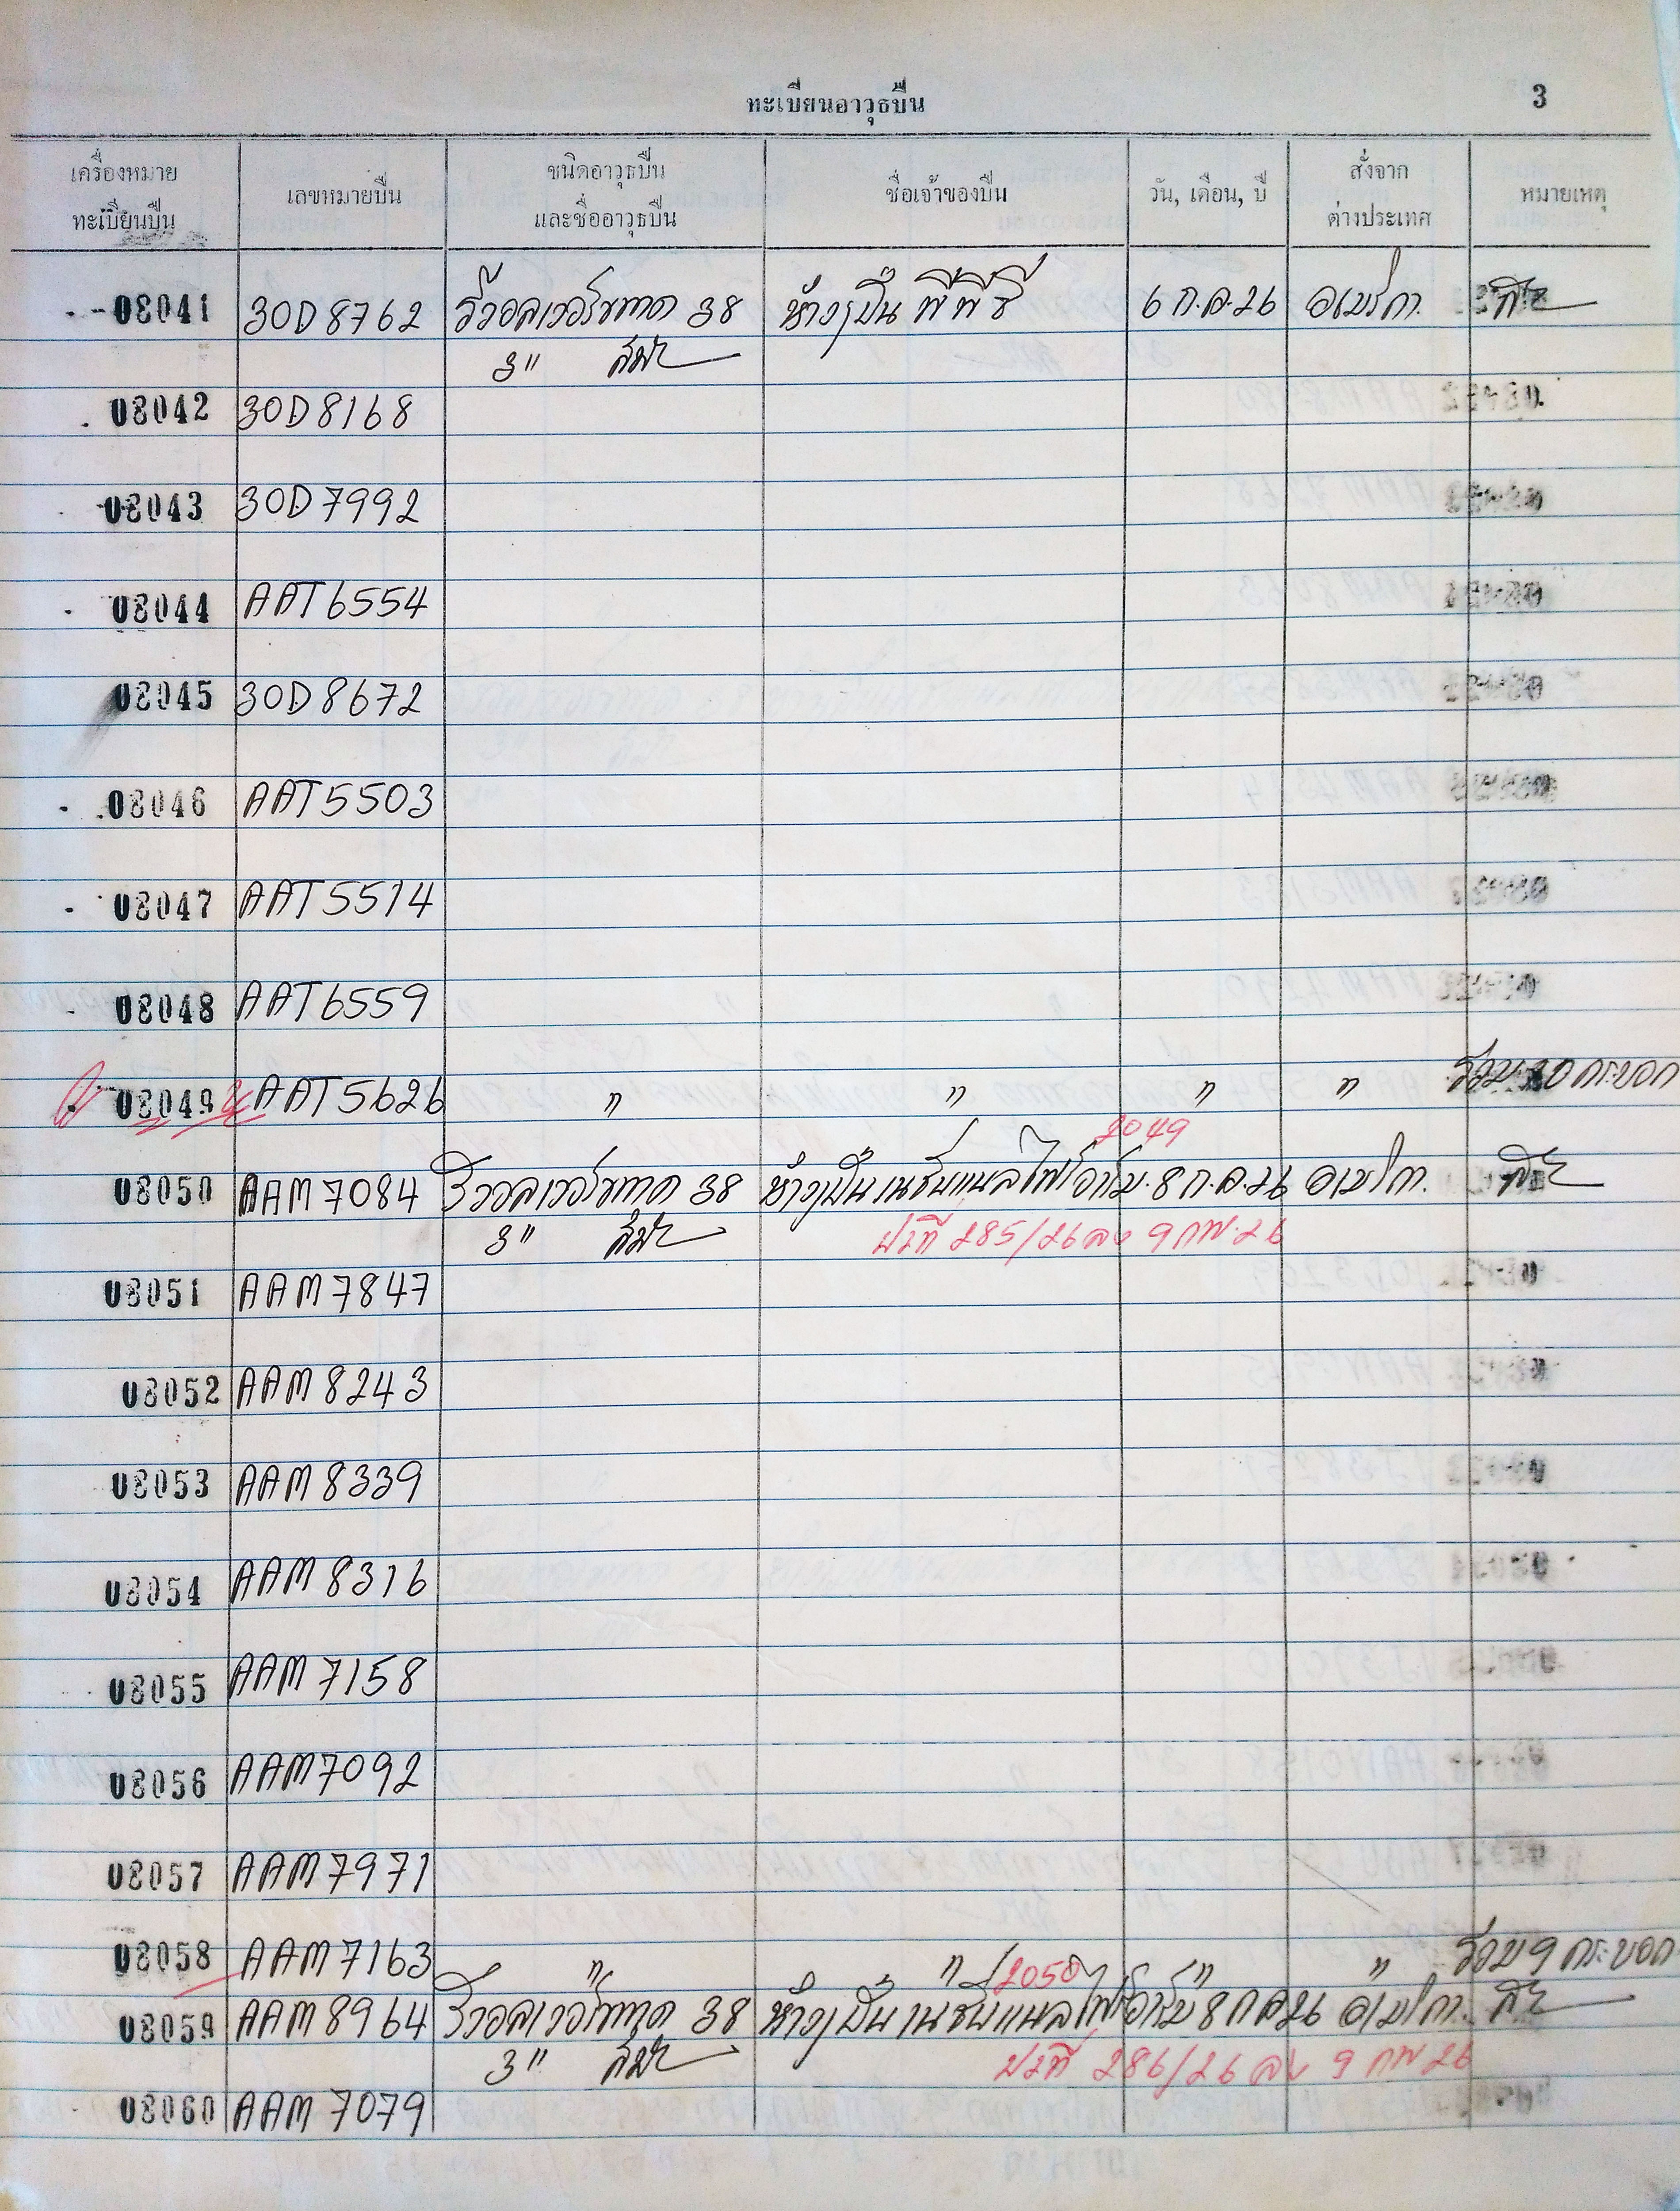 ทะเบียนอาวุธปืน 3
เครื่องหมาย ทะเบียนปืน เลขหมายปืน ชนิดอาวุธปืน และชื่ออาวุธปืน ชื่อเจ้าของปืน วัน, เดือน, ปี สั่งจาก ต่างประเทศ หมายเหตุ
08041 30D8762 รีวอลเวอร์ขนาด 38 ห้างปืน พีพีซี 6 ก.ค.26 อเมริกา
3"
08042 30D8168
08043 30D7992
08044 AAT6554
08045 30D8672
08046 AAT5503
08047 AAT5514
08048 AAT6559
08049 AAT5626 " " " " รวม 20 กระบอก
2049
08050 AAM7084 รีวอลเวอร์ขนาด 38 ห้างปืนเนชั่นแนลไฟร์อาร์ม 8 ก.ค.26 อเมริกา
3" ปงที่ 285/26 ลง 9 กพ.26
08051 AAM7847
08052 AAM8243
08053 AAM8339
08054 AAM8316
08055 AAM7158
08056 AAM7092
08057 AAM7971
08058 AAM7163 " " " " รวม 9 กระบอก
2050
08059 AAM8964 รีวอลเวอร์ขนาด 38 ห้างปืนเนชั่นแนลไฟร์อาร์ม 8 ก.ค.26 อเมริกา
3" ปงที่ 286/26 ลง 9 กพ 26
08060 AAM7079